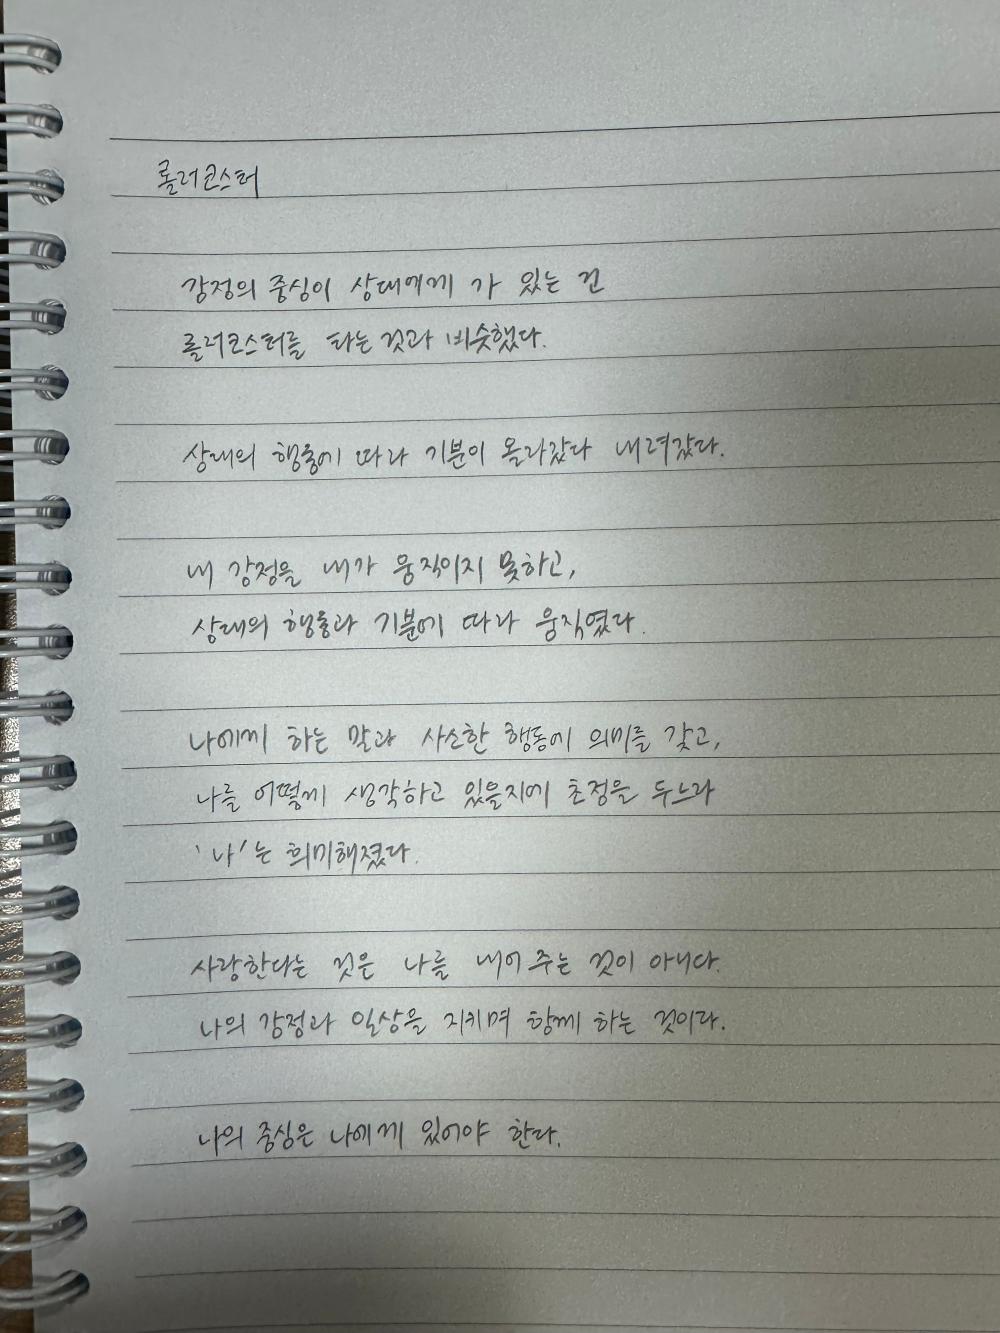 롤러코스터
감정의 중심이 상대에게 가 있는 건
롤러코스터를 타는 것과 비슷했다.
상대의 행동에 따라 기분이 올라갔다 내려갔다.
내 감정을 내가 움직이지 못하고,
상대의 행동과 기분에 따라 움직였다.
나에게 하는 말과 사소한 행동에 의미를 갖고,
나를 어떻게 생각하고 있을지에 초점을 두느라
'나'는 희미해졌다.
사랑한다는 것은 나를 내어 주는 것이 아니다.
나의 감정과 일상을 지키며 함께 하는 것이다.
나의 중심은 나에게 있어야 한다.